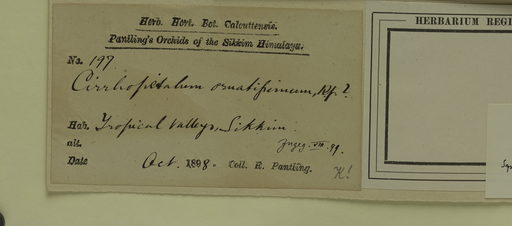 Herb. Hort. Bot. Calcuttensis.
Pantling's Orchids of the Sikkim Himalaya.
No. 197
Cirrhopetalum ornatissimum, Rchb.f.
Hab. Tropical Valleys, Sikkim
alt.
Date Oct. 1898. Coll. R. Pantling.
K!
HERBARIUM REGI